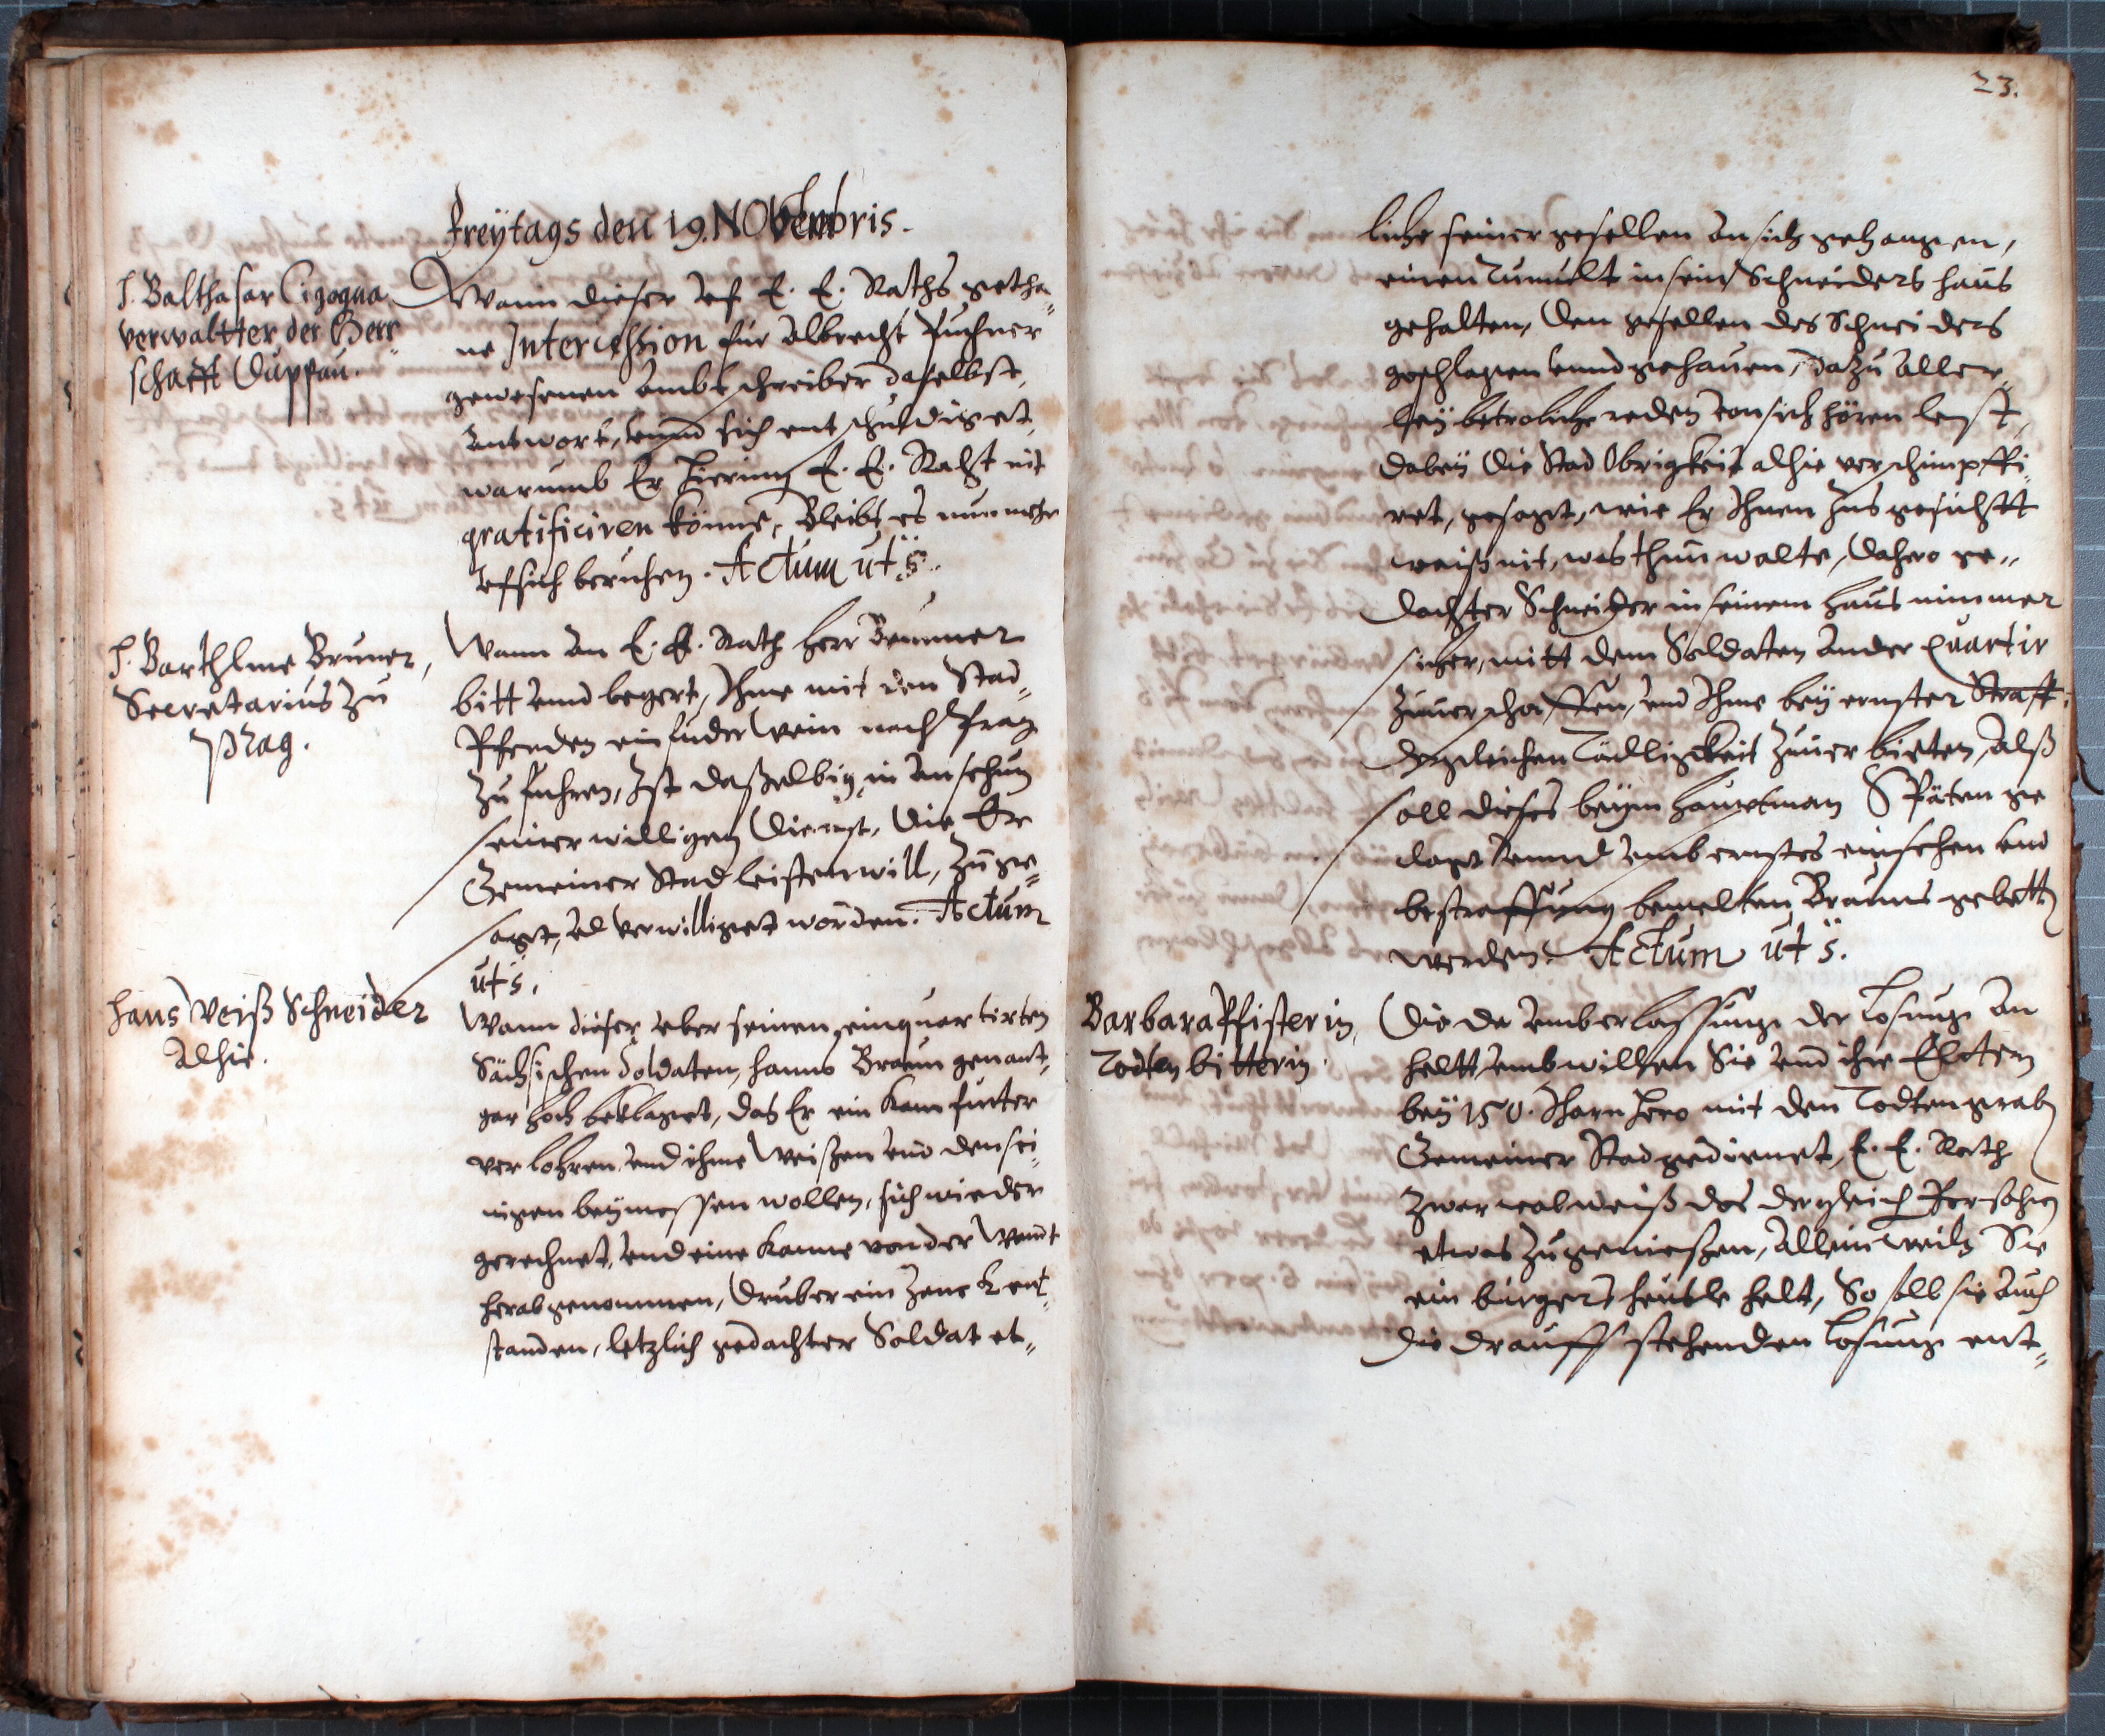 Freÿtags den 19. NOVembris.
H. Balthasar Cigogna
verwaltter der Herr=
schafft Duppau.
Wann dieser vf E. E. Raths getha=
ne Intercession für Albrecht Puchner
gewesenen Ambtschreiber daselbst,
antwort, vnnd sich entschuldiget,
warumb Er hierinn E. E. Raht nit
gratificiren könne, Bleibt es nunmehr
vf sich beruhen. Actum ut s.
H. Barthlme Bruner,
Secretarius zu
Prag.
Wann an E. E. Rath Herr Brunner
bitt vnnd begert, Ihme mit den Stad=
Pferden ein fuder Wein nach Prag
zu führen, Ist daßelbig in ansehung
seiner willigen Dienst, die Er
Gemeiner Stad leisten will, zuge=
sagt, vnd verwilliget worden. Actum
ut s.
Hans Weiß Schneider
Alhie.
Wann dieser vber seinen einquartirten
Sächsischen Soldaten, Hanns Braun genant,
gar hoch beklaget, das Er ein Kam futter
verlohren vnd ihme Weißen vnd den sei=
nigen beymessen wollen, sich wieder
gerechnet, vnd eine Kanne von der Wandt
herab genommen, Drüber ein Zanck ent=
standen, letzlich gedachter Soldat et=
23.
liche seiner gesellen an sich gehangen,
einen Tumult in sein Schneiders hauß
gehalten, den gesellen des Schneiders
geschlagen vnnd gehauen, dazu aller=
leÿ betroliche reden von sich hören lest,
dabeÿ die Stad Obrigkeit alhie verschimpffi=
ret, gesagt, wie Er Ihnen ins gesichtt
weiß nit, was thun wolte, Dahero ge=
dachter Schneider in seinem hauß nimmer
sicher, mitt dem Soldaten ander Quartir
zuuerschaffen, vnd Ihme beÿ ernster Straff
dergleichen Tädligkeit zuuerbieten, Alß
soll dieses beÿm Hauptman Späten ge
klagt vnnd vmb ernstes einsehen vnd
bestraffung bemelten Brauns gebetten
werden. Actum ut s.
Barbara Pfisterin,
Todtenbitterin.
Die da vmb erlassung der Losung an
heltt, vmb willen Sie vnd ihre Eltern
beÿ 150. Jharn hero mit den Todtengraben
Gemeiner Stad gedienet, E. E. Rath
zwar wol weiß das dergleich Persohnen
etwas zugenießen, Allein weiln Sie
ein bürgers heußle helt, So soll sie auch
die drauff stehenden Losung ent=